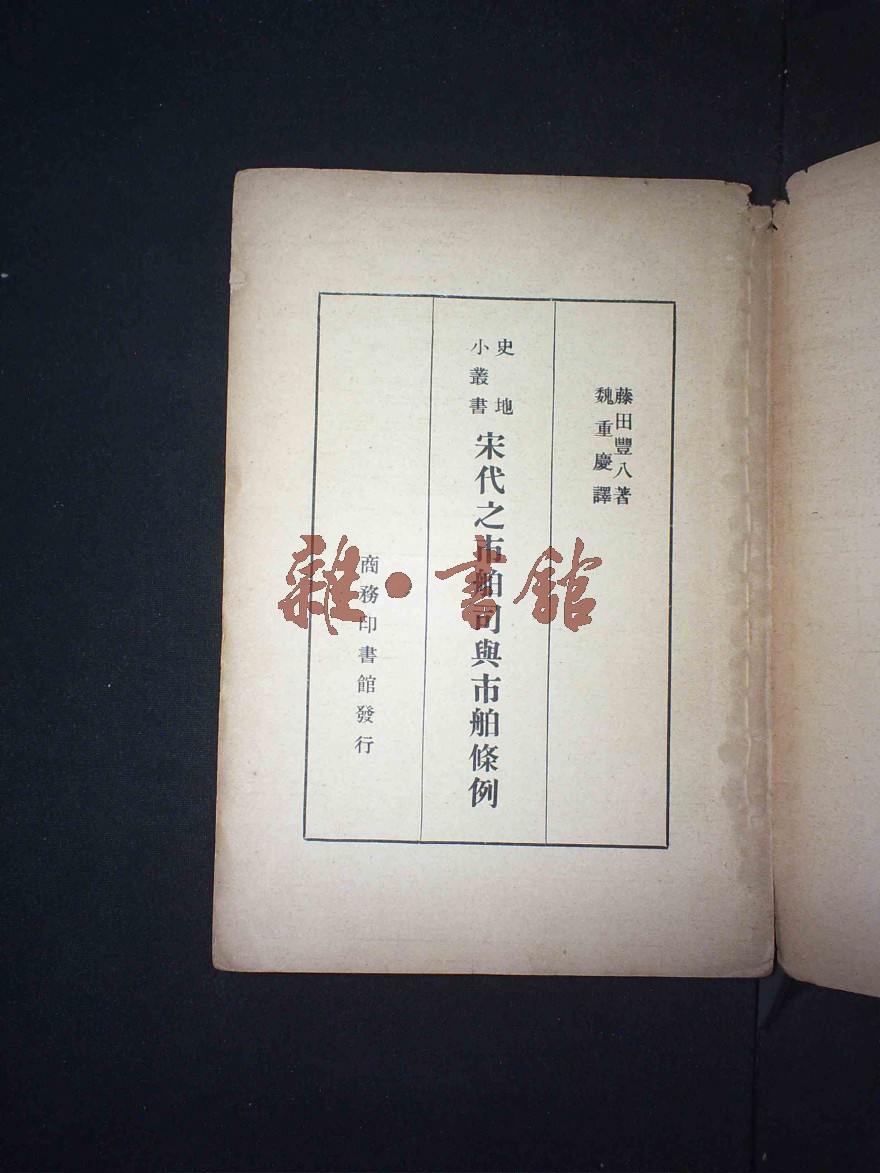 藤田豐八著
魏重慶譯
史地
小叢書
宋代之市舶司與市舶條例
商務印書館發行
雜·書館